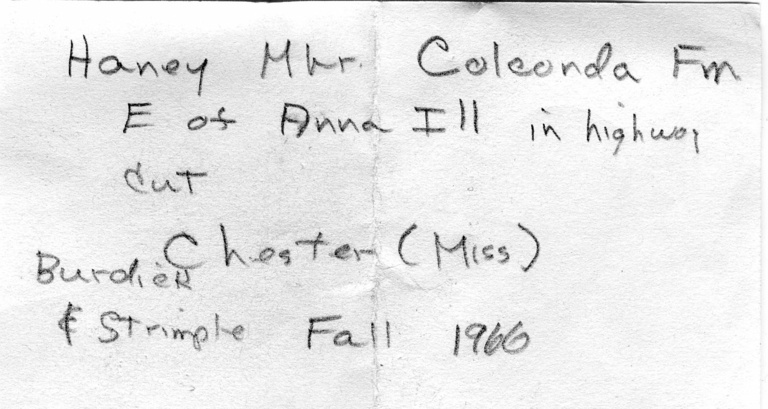 Haney Mbr. Colconda Fm
E of Anna Ill in highway
cut
Chester (Miss)
Burdick
& Strimple Fall 1966